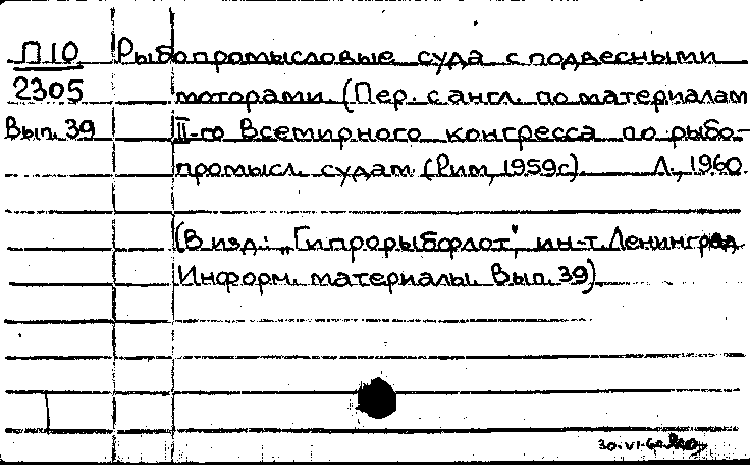 П 10 Рыбопромысловые суда с подвесными
2305 моторами. (Пер. с англ. по материалам
Вып. 39 II-го Всемирного конгресса по рыбо-
промысл. судам (Рим, 1959г). Л., 1960.
(В изд: „Гипрорыбфлот", ин-т. Ленинград
Информ. материалы. Вып. 39).
30-VI-60